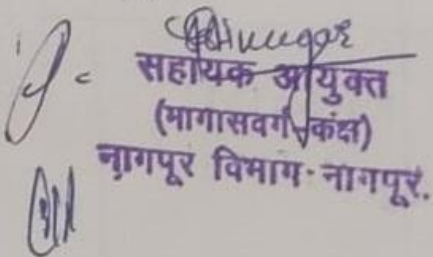 सहायक आयुक्त
(मागासवर्ग कक्ष)
नागपूर विभाग-नागपूर.